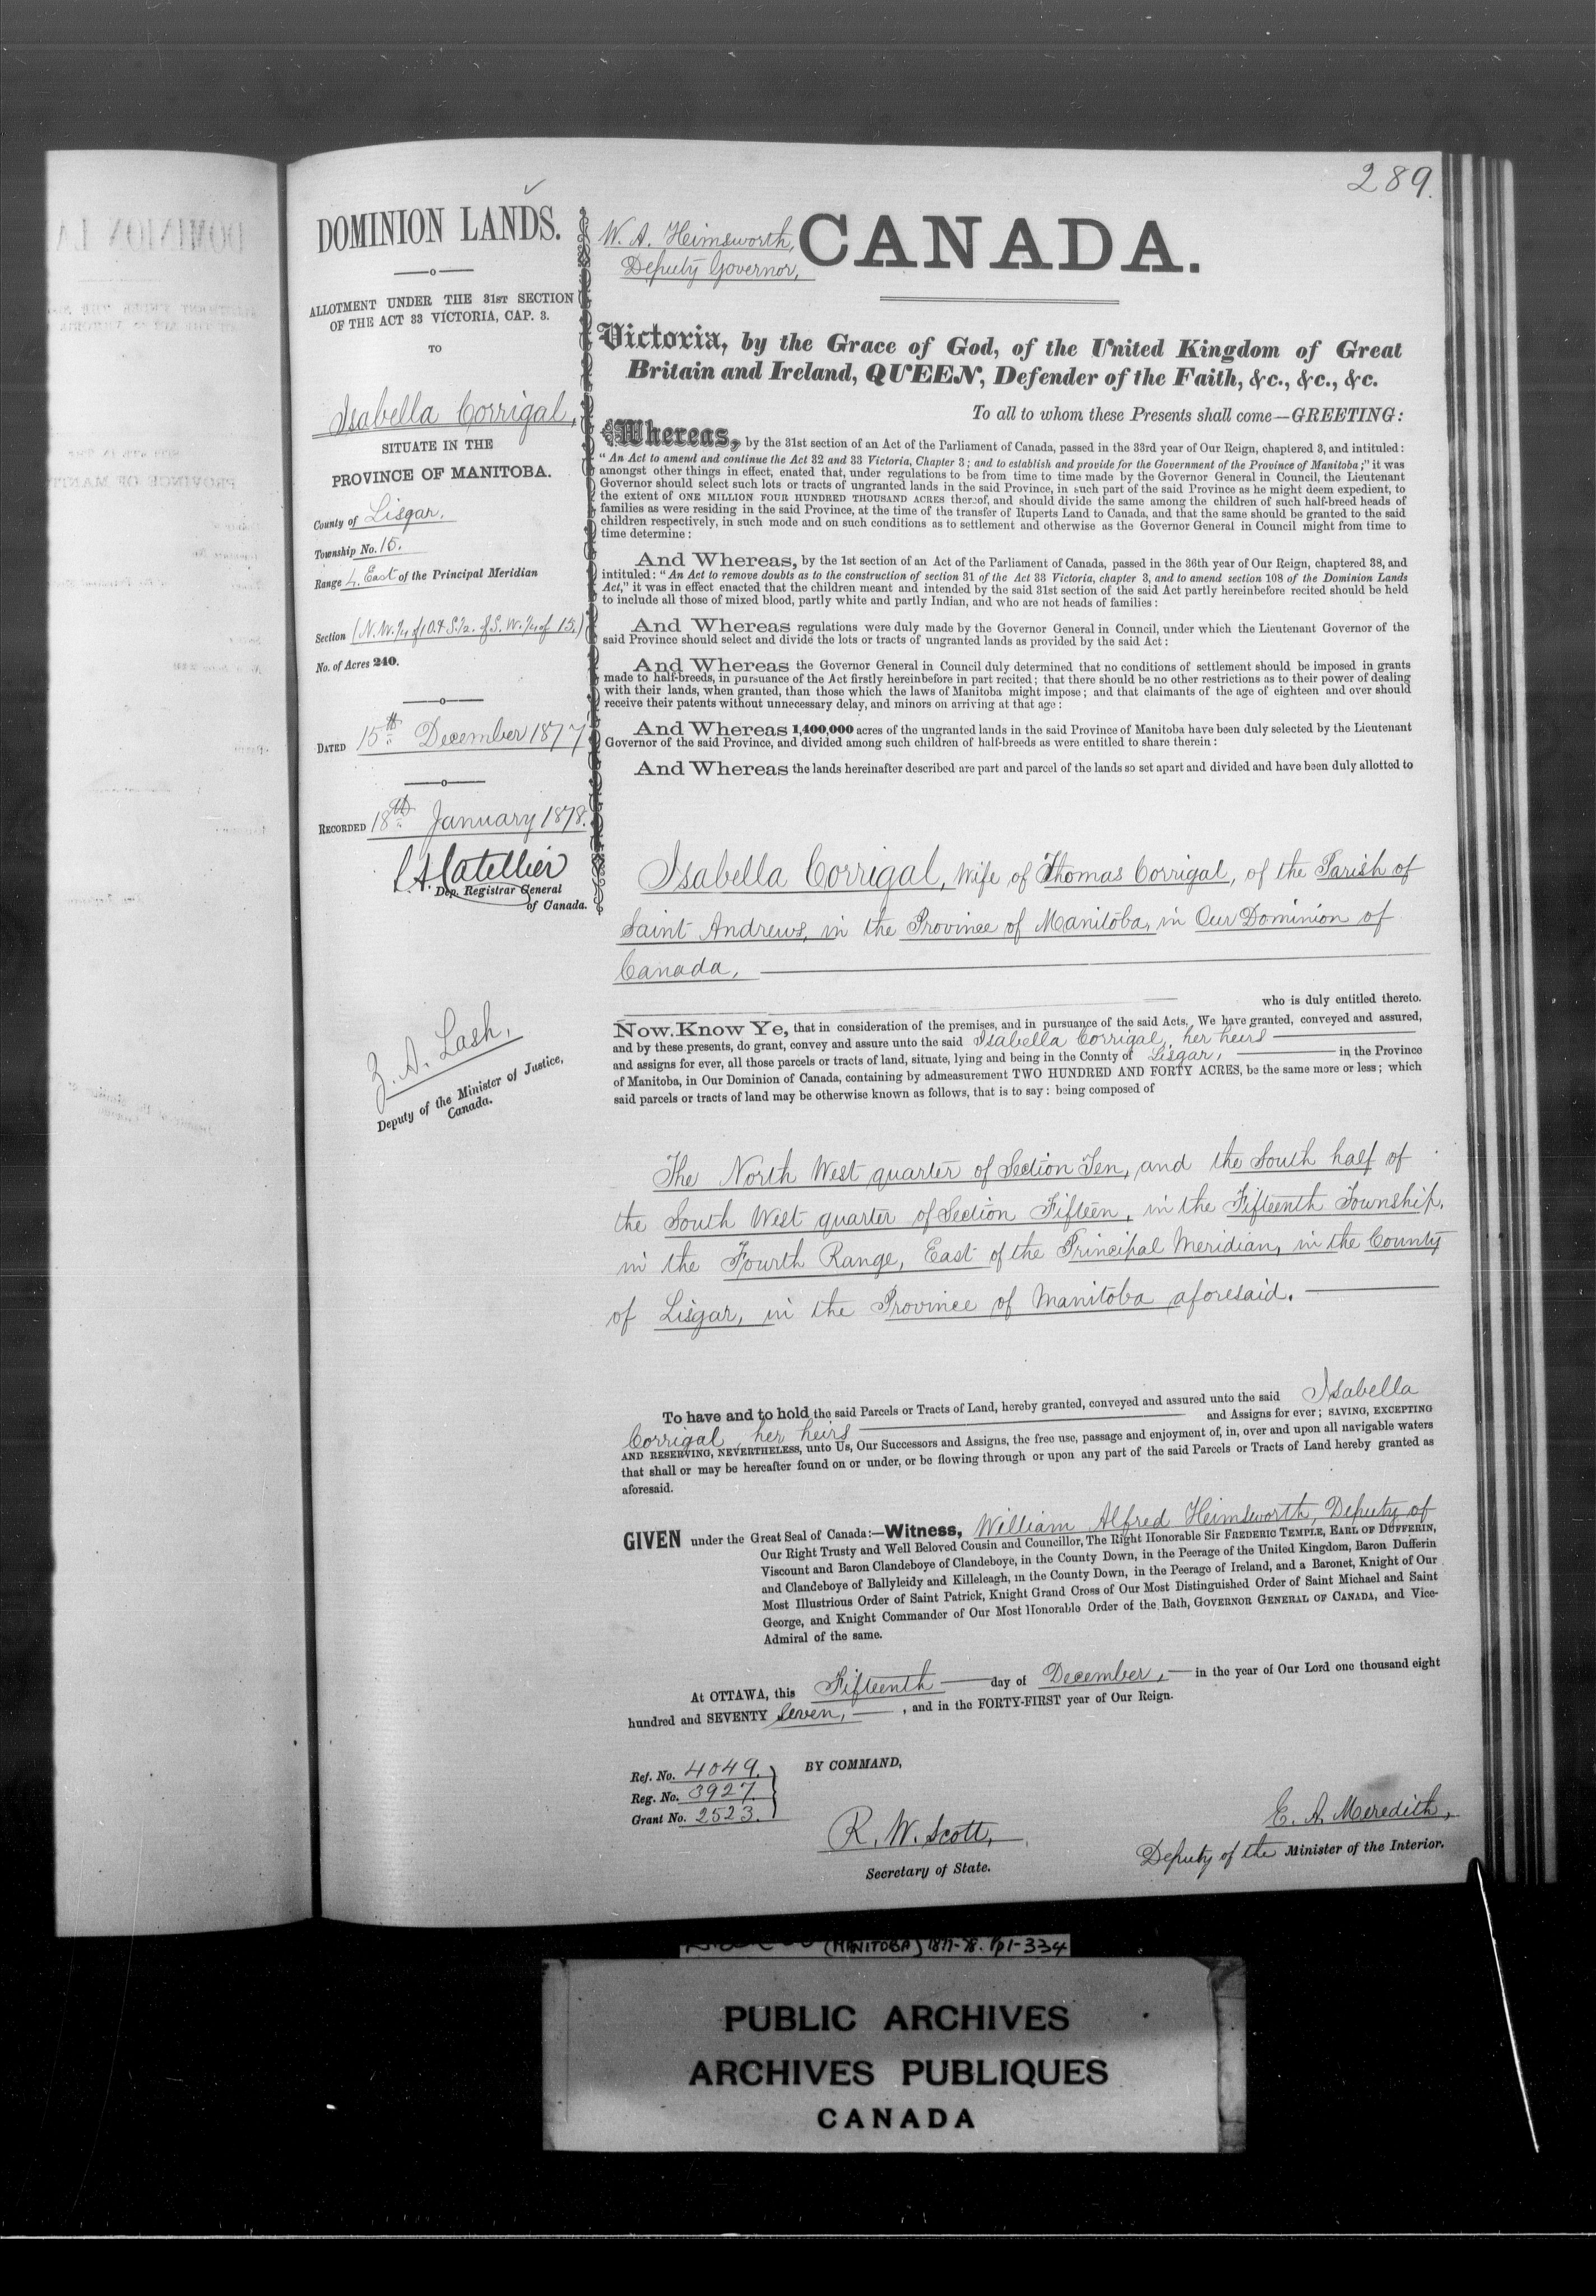 289.
DOMINION LANDS.
ALLOTMENT UNDER THE 31ST SECTION
OF THE ACT 33 VICTORIA, CAP. 3.
TO
Isabella Corrigal,
SITUATE IN THE
PROVINCE OF MANITOBA.
County of Lisgar.
Township No. 15.
Range 4. East of the Principal Meridian
Section (N.W.1/4 of 10. & S.1/2. of S.W.1/4 of 15.)
No. of Acres 240.
DATED 15th December 1877
RECORDED 18th January 1878.
Dep. Registrar General
of Canada.
Z. A. Lash,
Deputy of the Minister of Justice,
Canada.
W. A. Heimsworth,
Deputy Governor,
CANADA.
Victoria, by the Grace of God, of the United Kingdom of Great
Britain and Ireland, QUEEN, Defender of the Faith, &c., &c., &c.
To all to whom these Presents shall come—GREETING:
Whereas, by the 31st section of an Act of the Parliament of Canada, passed in the 33rd year of Our Reign, chaptered 3, and intituled:
"An Act to amend and continue the Act 32 and 33 Victoria, Chapter 3; and to establish and provide for the Government of the Province of Manitoba;" it was
amongst other things in effect, enated that, under regulations to be from time to time made by the Governor General in Council, the Lieutenant
Governor should select such lots or tracts of ungranted lands in the said Province, in such part of the said Province as he might deem expedient, to
the extent of ONE MILLION FOUR HUNDRED THOUSAND ACRES thereof, and should divide the same among the children of such half-breed heads, of
families as were residing in the said Province, at the time of the transfer of Ruperts Land to Canada, and that the same should be granted to the said
children respectively, in such mode and on such conditions as to settlement and otherwise as the Governor General in Council might from time to
time determine:
And Whereas, by the 1st section of an Act of the Parliament of Canada, passed in the 36th year of Our Reign, chaptered 38, and
intituled: "An Act to remove doubts as to the construction of section 31 of the Act 33 Victoria, chapter 3, and to amend section 108 of the Dominion Lands
Act," it was in effect enacted that the children meant and intended by the said 31st section of the said Act partly hereinbefore recited should be held
to include all those of mixed blood, partly white and partly Indian, and who are not heads of families:
And Whereas regulations were duly made by the Governor General in Council, under which the Lieutenant Governor of the
said Province should select and divide the lots or tracts of ungranted lands as provided by the said Act:
And Whereas the Governor General in Council duly determined that no conditions of settlement should be imposed in grants
made to half-breeds, in pursuance of the Act firstly hereinbefore in part recited; that there should be no other restrictions as to their power of dealing
with their lands, when granted, than those which the laws of Manitoba might impose; and that claimants of the age of eighteen and over should
receive their patents without unnecessary delay, and minors on arriving at that age:
And Whereas 1,400,000 acres of the ungranted lands in the said Province of Manitoba have been duly selected by the Lieutenant
Governor of the said Province, and divided among such children of half-breeds as were entitled to share therein:
And Whereas the lands hereinafter described are part and parcel of the lands so set apart and divided and have been duly allotted to
Isabella Corrigal, Wife of Thomas Corrigal, of the Parish of
Saint Andrews, in the Province of Manitoba, in Our Dominion of
Canada,
who is duly entitled thereto.
Now. Know Ye, that in consideration of the premises, and in pursuance of the said Acts, We have granted, conveyed and assured,
and by these presents, do grant, convey and assure unto the said Isabella Corrigal, her heirs
and assigns for ever, all those parcels or tracts of land, situate, lying and being in the County of Lisgar, in the Province
of Manitoba, in Our Dominion of Canada, containing by admeasurement TWO HUNDRED AND FORTY ACRES, be the same more or less; which
said parcels or tracts of land may be otherwise known as follows, that is to say: being composed of
The North West quarter of Section Ten, and the South half of
the South West quarter of Section Fifteen, in the Fifteenth Township,
in the Fourth Range, East of the Principal Meridian, in the County
of Lisgar, in the Province of Manitoba aforesaid.
To have and to hold the said Parcels or Tracts of Land, hereby granted, conveyed and assured unto the said Isabella
Corrigal her heirs and Assigns for ever; SAVING, EXCEPTING
AND RESERVING, NEVERTHELESS, unto Us, Our Successors and Assigns, the free use, passage and enjoyment of, in, over and upon all navigable waters
that shall or may be hereafter found on or under, or be flowing through or upon any part of the said Parcels or Tracts of Land hereby granted as
aforesaid.
GIVEN under the Great Seal of Canada:—Witness, William Alfred Heimsworth, Deputy of
Our Right Trusty and Well Beloved Cousin and Councillor, The Right Honorable Sir FREDERIC TEMPLE, EARL OF DUFFERIN,
Viscount and Baron Clandeboye of Clandeboye, in the County Down, in the Peerage of the United Kingdom, Baron Dufferin
and Clandeboye of Ballyleidy and Killeleagh, in the County Down, in the Peerage of Ireland, and a Baronet, Knight of Our
Most Illustrious Order of Saint Patrick, Knight Grand Cross of Our Most Distinguished Order of Saint Michael and Saint
George, and Knight Commander of Our Most Honorable Order of the Bath, GOVERNOR GENERAL OF CANADA, and Vice-
Admiral of the same.
At OTTAWA, this Fifteenth day of December, in the year of Our Lord one thousand eight
hundred and SEVENTY Seven, , and in the FORTY-FIRST year of Our Reign.
Ref. No. 4049.
Reg. No. 3927.
Grant No. 2523.
BY COMMAND,
R. W. Scott,
Secretary of State.
E. A. Meredith,
Deputy of the Minister of the Interior.
(MANITOBA) 1877-78. pp1-334
PUBLIC ARCHIVES
ARCHIVES PUBLIQUES
CANADA